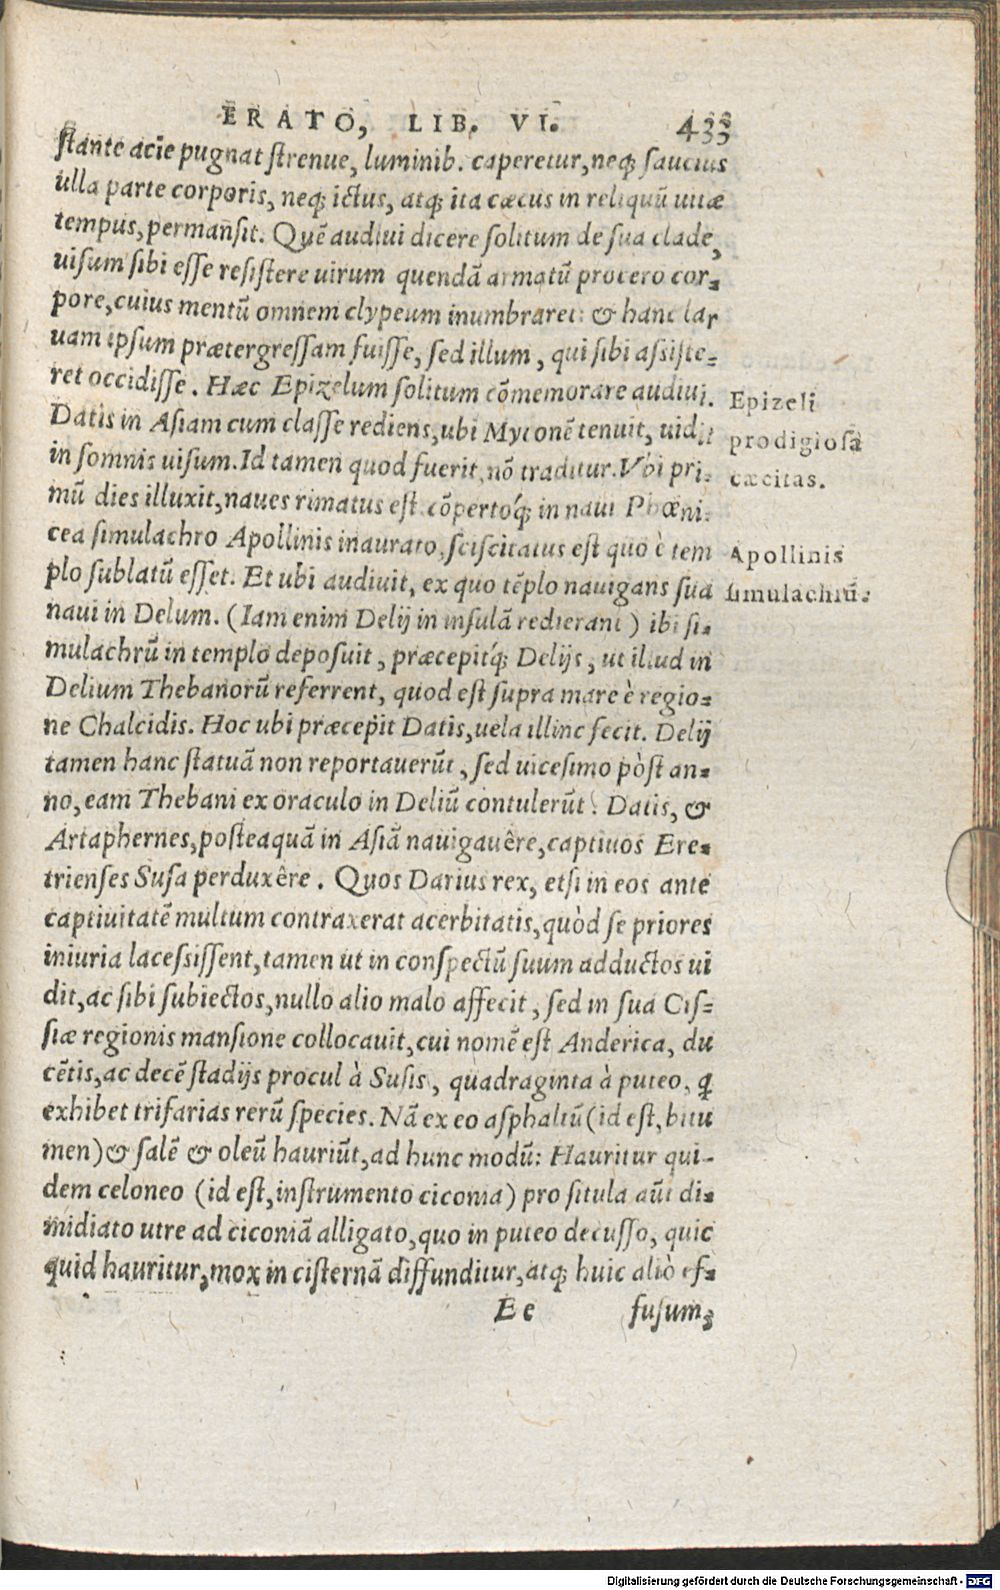 ERATO, LIB. VI. 433
ſtante acie pugnat ſtrenue, luminib. caperetur, neq́; ſaucius
ulla parte corporis, neq́; ictus, atq́; ita cæcus in reliquũ uitæ
tempus, permanſit. Quẽ audiui dicere ſolitum de ſua clade,
uiſum ſibi eſſe reſiſtere uirum quendã armatũ procero cor-
pore, cuius mentũ omnem clypeum inumbraret: & hanc lar
uam ipſum prætergreſſam fuiſſe, ſed illum, qui ſibi aſsiſte-
ret occidiſſe. Hæc Epizelum ſolitum cõmemorare audiui.
Epizeli
Datis in Aſiam cum claſſe rediens, ubi Myconẽ tenuit, uidit
prodigioſa
in ſomnis uiſum. Id tamen quod fuerit, nõ traditur. Vbi pri-
cæcitas.
mũ dies illuxit, naues rimatus eſt. cõpertoq́; in naui Phœni-
cea ſimulachro Apollinis inaurato, ſciſcitatus eſt quo è tem
Apollinis
plo ſublatũ eſſet. Et ubi audiuit, ex quo tẽplo nauigans ſua
ſimulachrũ.
naui in Delum. (Iam enim Delij in inſulã redierant) ibi ſi-
mulachrũ in templo depoſuit, præcepitq́; Delijs, ut illud in
Delium Thebanorũ referrent, quod eſt ſupra mare è regio-
ne Chalcidis. Hoc ubi præcepit Datis, uela illinc fecit. Delij
tamen hanc ſtatuã non reportauerũt, ſed uiceſimo pòſt an-
no, eam Thebani ex oraculo in Deliũ contulerũt. Datis, &
Artaphernes, poſteaquã in Aſiã nauigauêre, captiuos Ere-
trienſes Suſa perduxêre. Quos Darius rex, etſi in eos ante
captiuitatẽ multum contraxerat acerbitatis, quòd ſe priores
iniuria laceſsiſſent, tamen ut in conſpectũ ſuum adductos ui
dit, ac ſibi ſubiectos, nullo alio malo affecit, ſed in ſua Ciſ-
ſiæ regionis manſione collocauit, cui nomẽ eſt Anderica, du
cẽtis, ac decẽ ſtadijs procul à Suſis, quadraginta à puteo, q̃
exhibet trifarias rerũ ſpecies. Nã ex eo aſphaltũ (id eſt, bitu
men) & ſalẽ & oleũ hauriũt, ad hunc modũ: Hauritur qui-
dem celoneo (id eſt, inſtrumento ciconia) pro ſitula aũt di-
midiato utre ad ciconiã alligato, quo in puteo decuſſo, quic
quid hauritur, mox in ciſternã diffunditur, atq́; huic aliò ef-
Ee fuſum,
Digitalisierung gefördert durch die Deutsche Forschungsgemeinschaft - DFG